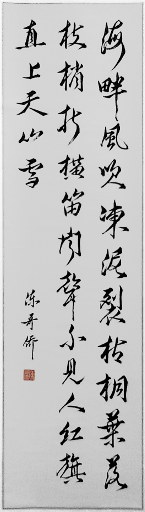 海畔風吹凍泥裂枯桐葉落
枝梢折橫笛聞聲不見人紅旗
直上天山雪
陈奇僑